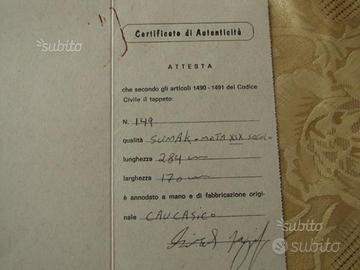 subito
Certificato di Autenticità
ATTESTA
che secondo gli articoli 1490 - 1491 del Codice
Civile il tappeto:
N. 149
qualità SUMAK METÀ XIX SECOLO
lunghezza 284 cm
larghezza 170 cm
è annodato a mano e di fabbricazione origi-
nale CAUCASICO
subito
subito